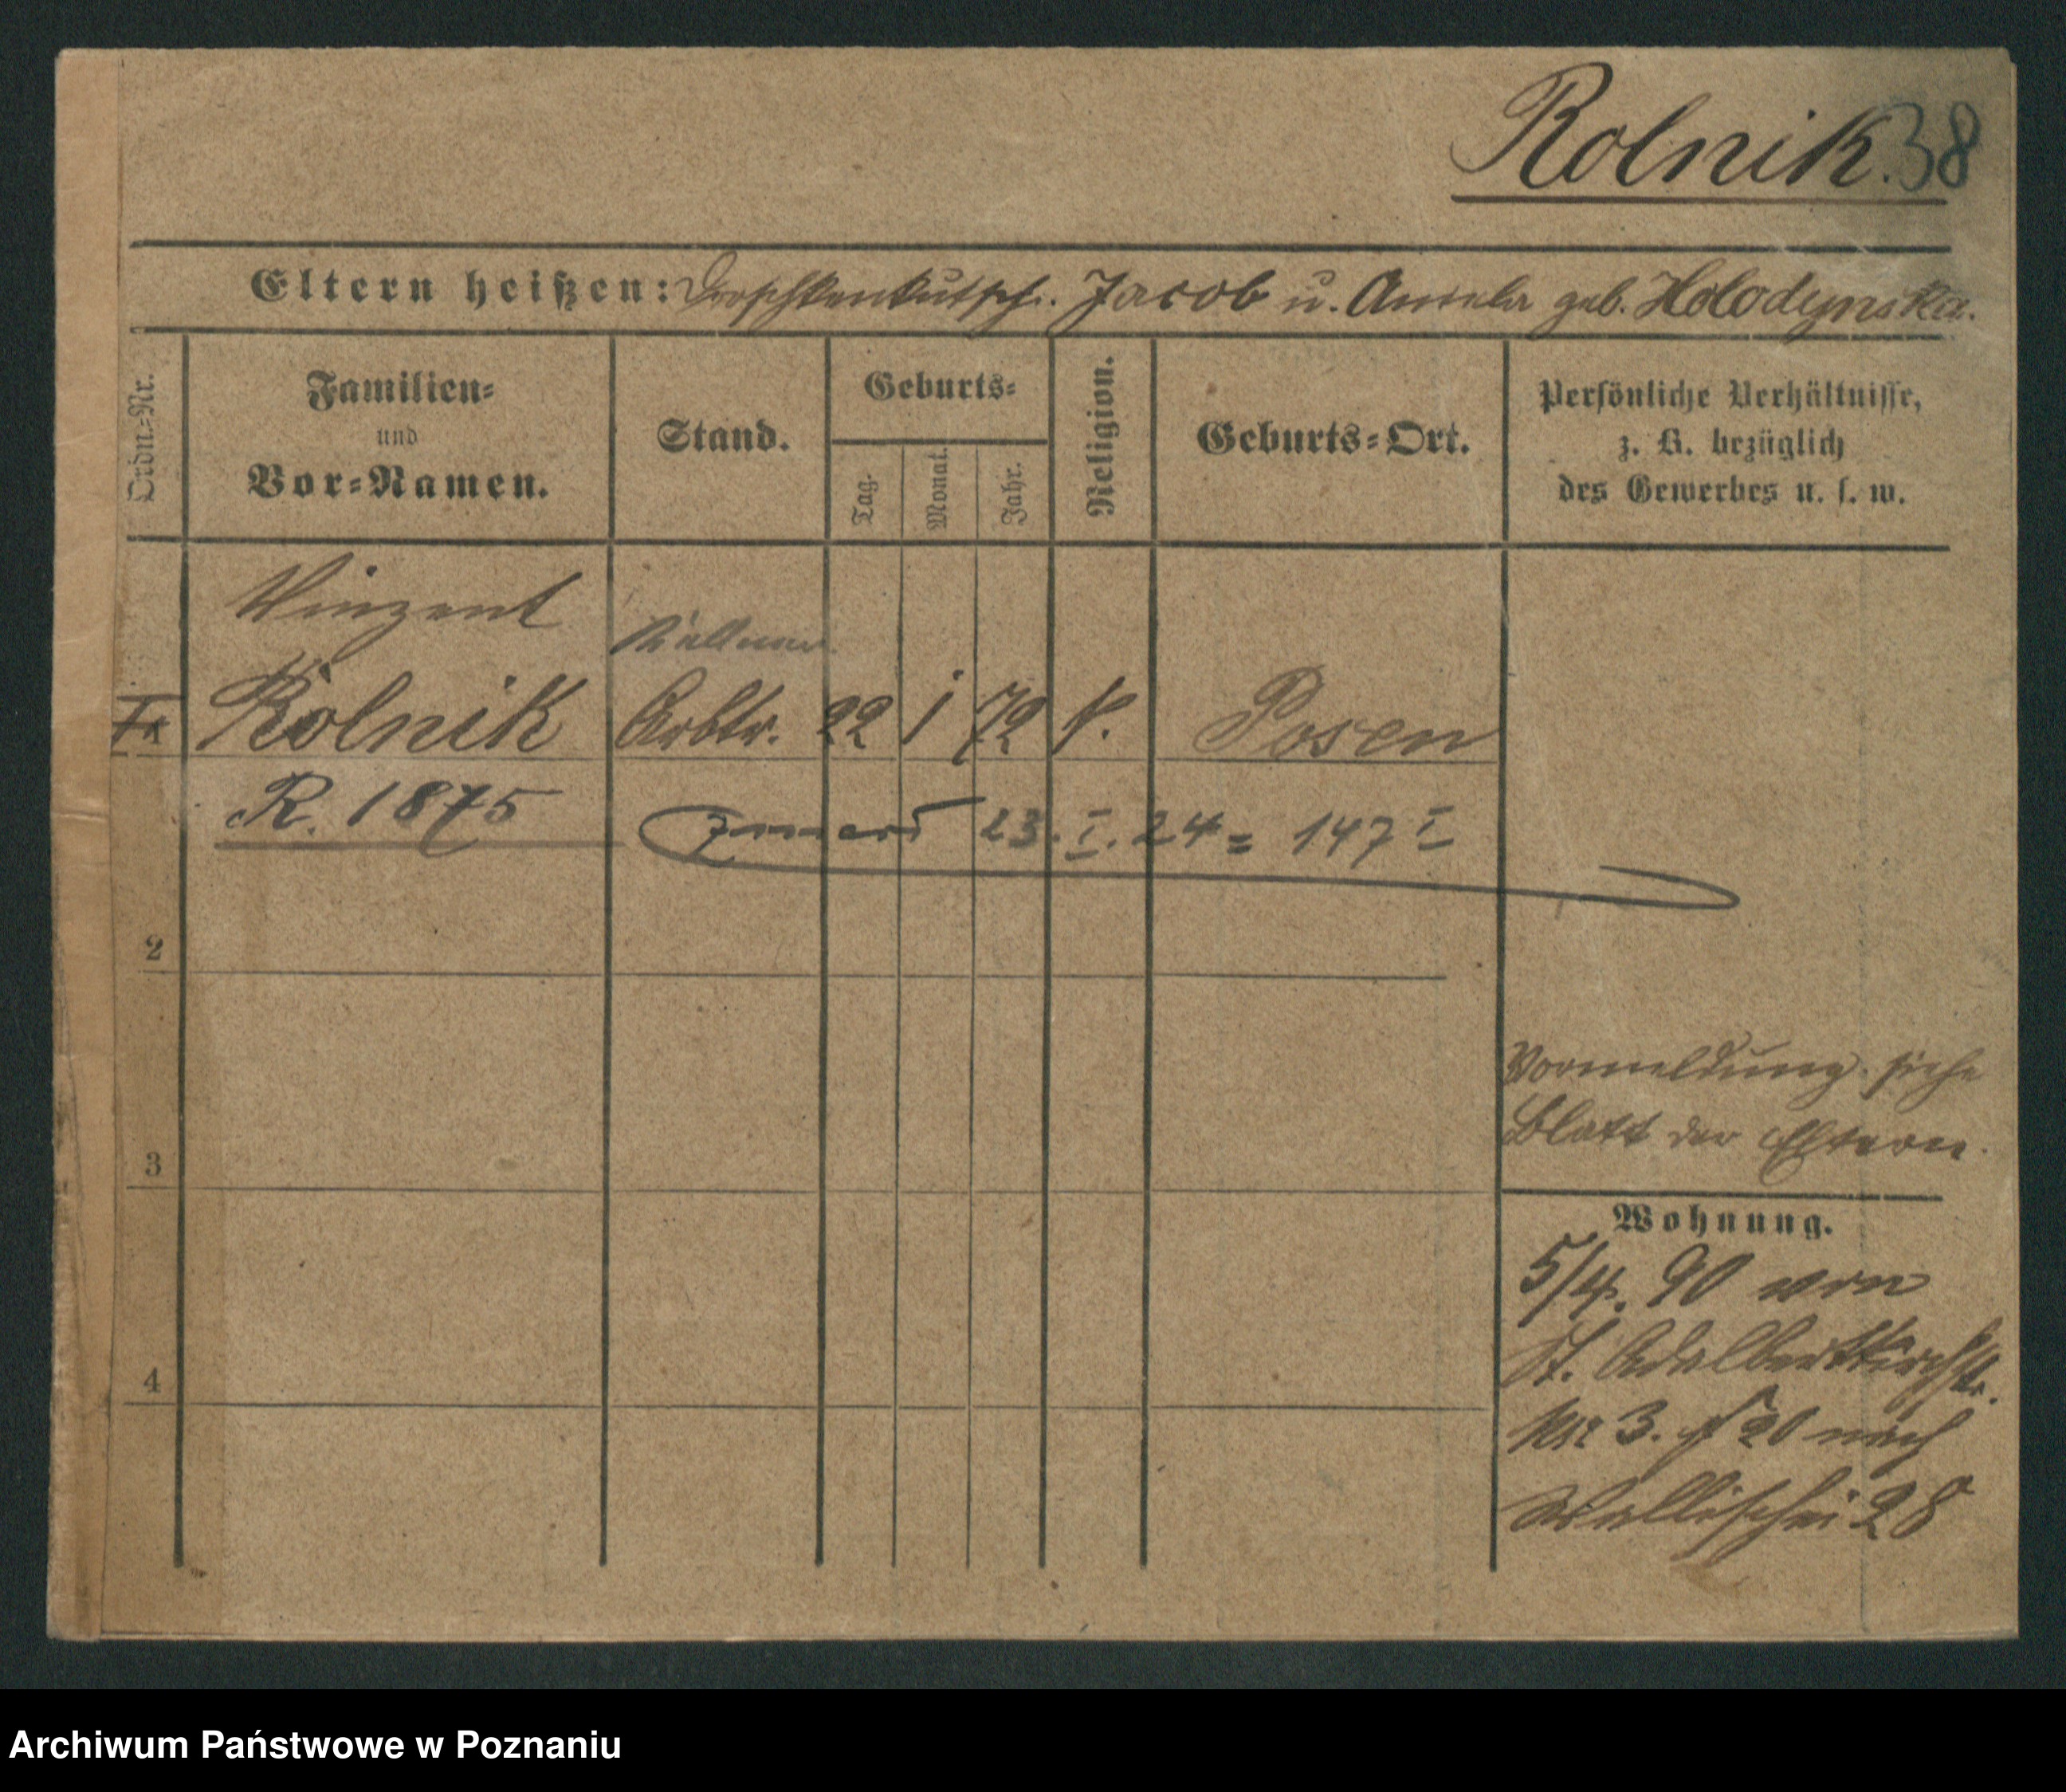 Rolnik. 38
Eltern heißen: Droschkenkutsch. Jacob u. Aniela geb. Holodynska.
Ordn.-Nr.
Familien-
und
Vor-Namen.
Stand.
Geburts-
Tag.
Monat.
Jahr.
Religion.
Geburts-Ort.
Persönliche Verhältnisse,
z. B. bezüglich
des Gewerbes u. s. w.
Vinzent
Kellner
Rolnik Arbtr. 22 1 72 k. Posen
R. 1875
zmarł 23. I. 24 = 147 I
2
3
4
Vormeldung siehe
Blatt der Eltern.
Wohnung.
5/4. 90 von
St. Adalbertkirchstr.
Nr 3. nach
Wallischei 28
Archiwum Państwowe w Poznaniu